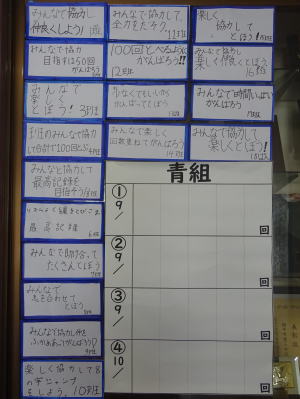 みんなで協力し
仲良くしよう!
みんなで協力して
全力をだそう。
11班
楽しく
協力して
とぼう!
みんなで協力
目指すは50回
がんばろう
100回とべるように
がんばろう!!
12班
みんなで協力し
楽しく仲良くとぼう。
16班
みんなで
楽しく
とぼう! 3班
少なくてもいいから
がんばってとぼう
みんなで時間いっぱい
がんばろう
みんなで協力
して合計で100回とぶ
みんなで楽しく
回数重ねてがんばろう
14班
みんなで協力して
楽しくとぼう!
18班
みんなと協力して
最高記録を
目指そう
最高記録
6班
みんなで助け合って
たくさんとぼう
みんなで
息を合わせて
とぼう
みんなで協力し仲を
ふかめあいがんばろう
楽しく協力して8
の字ジャンプ
をしよう。10班
青組
①
9/
回
②
9/
回
③
9/
回
④
10/
回